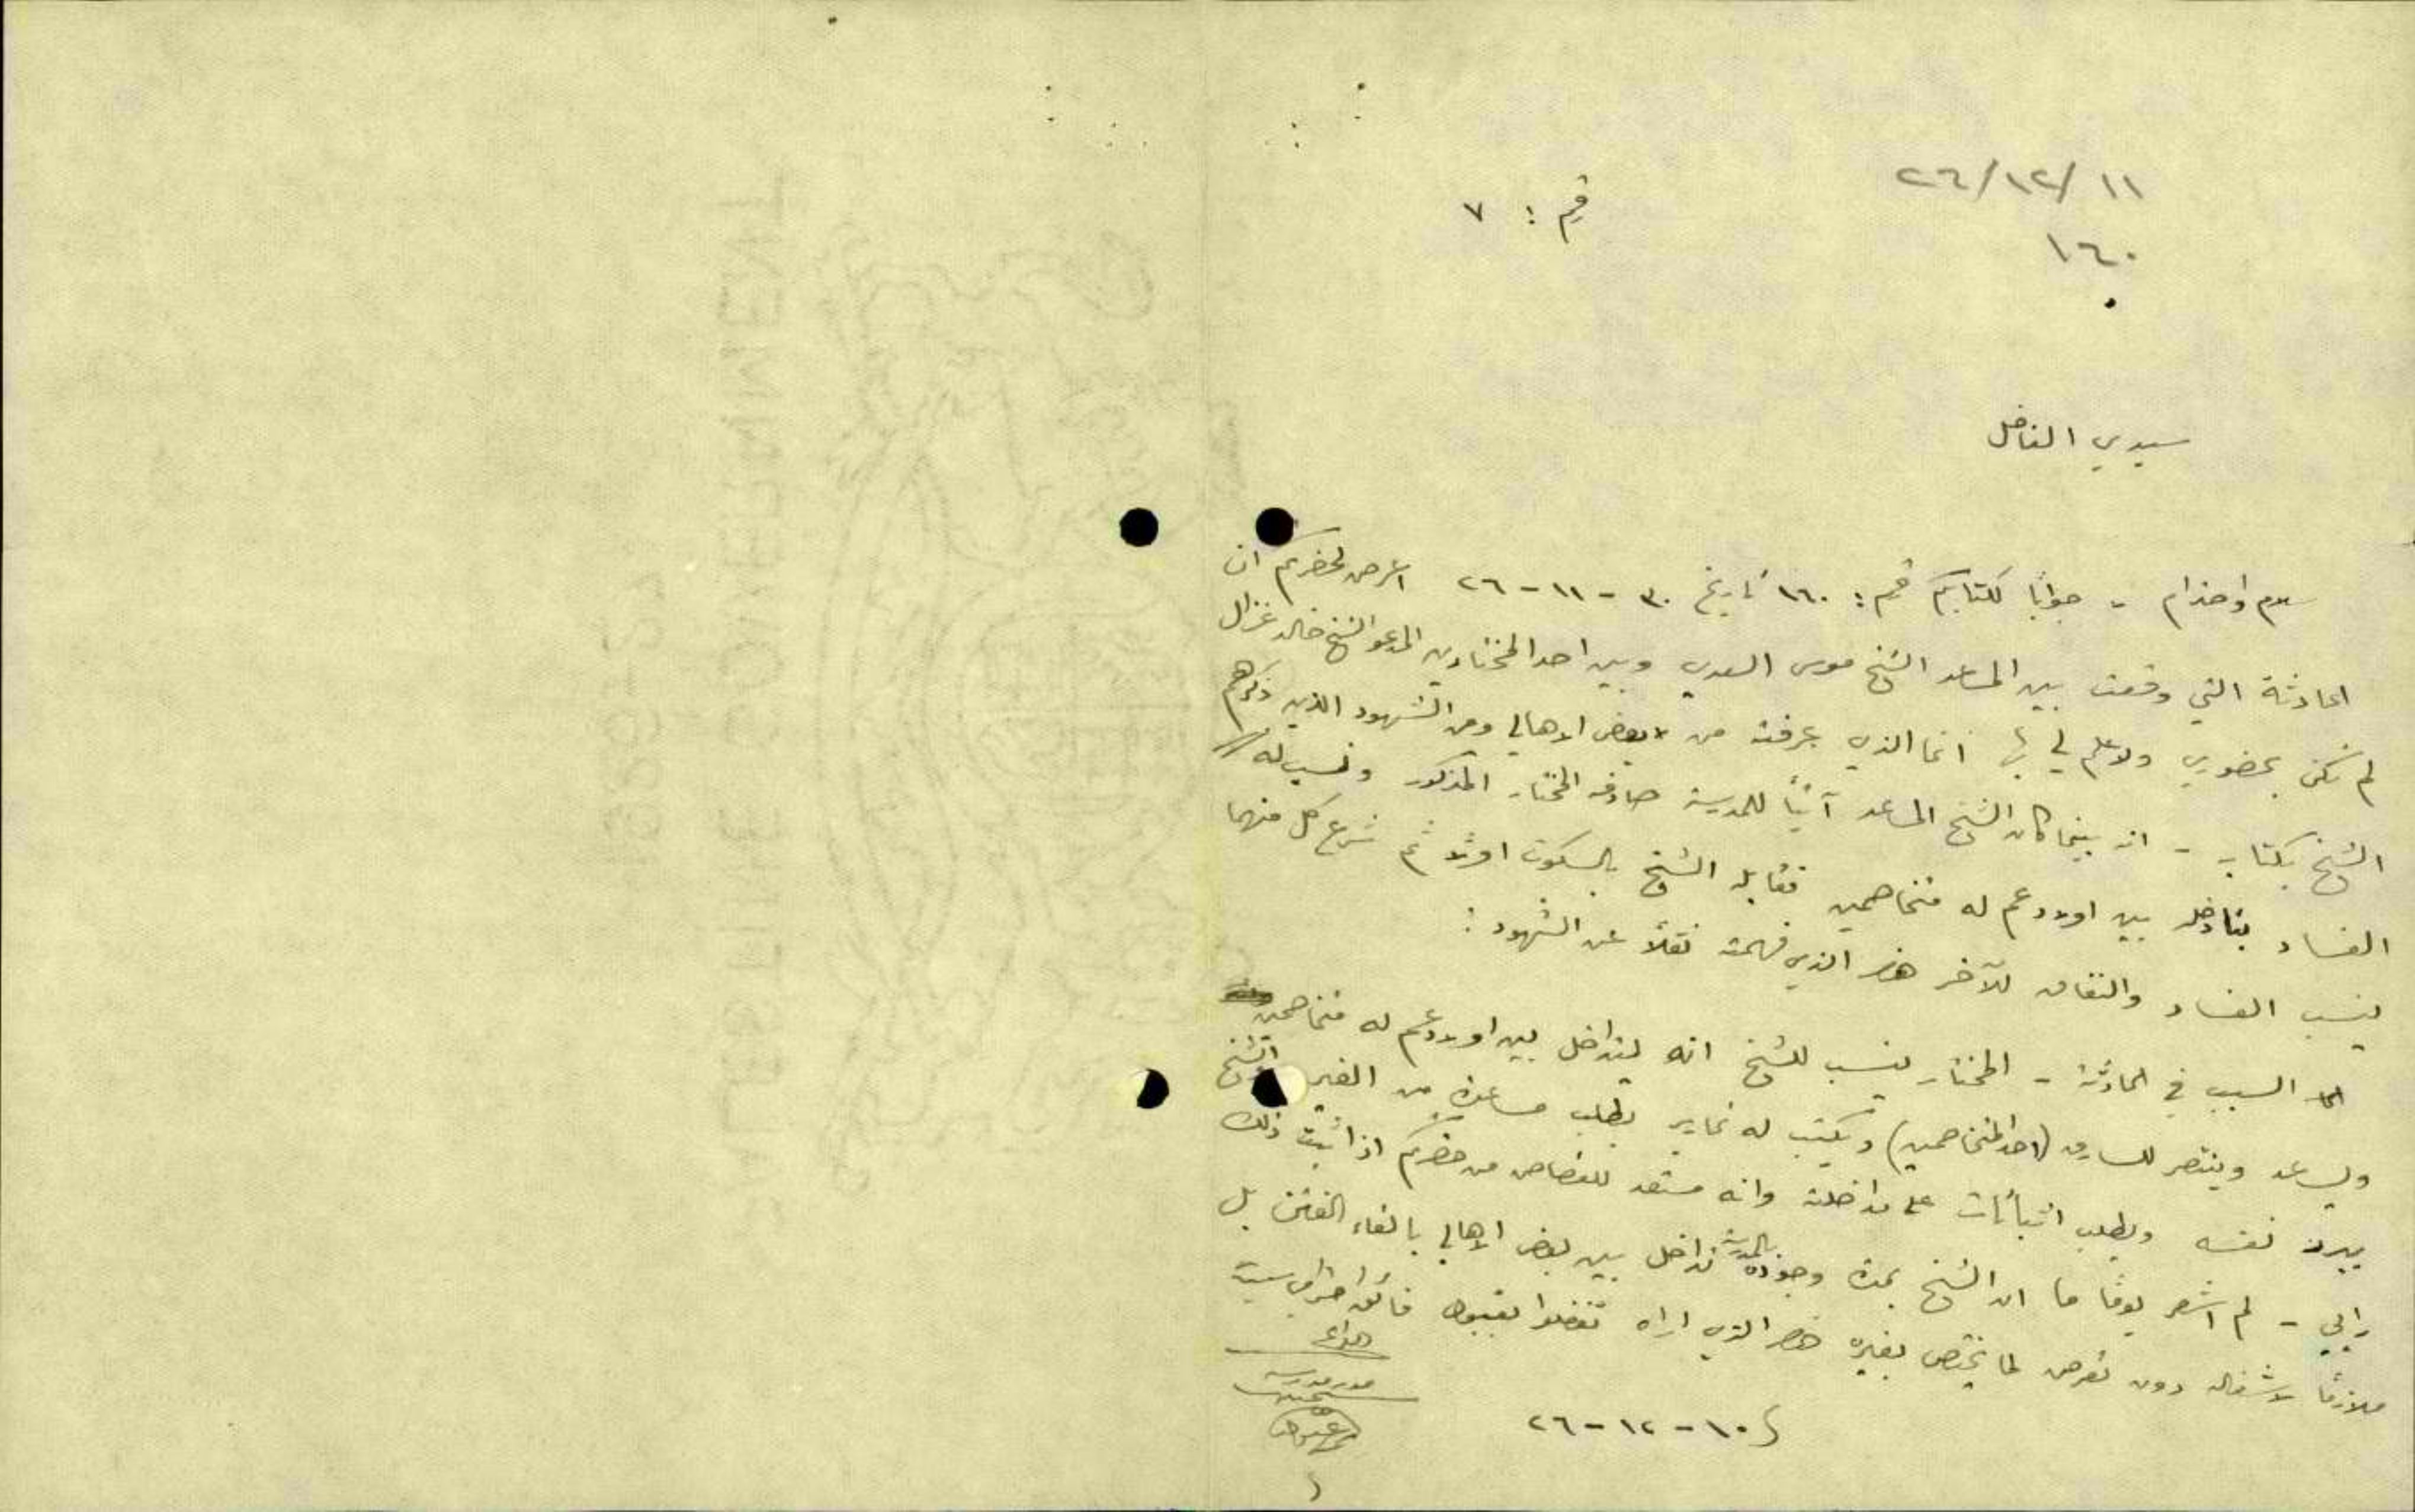 ٢٦/١٢/١١
١٦٠
رقم : ٧
سيدي الفاضل
سلام واحترام - جوابًا لكتابكم رقم : ١٦٠ تاريخ ٣٠ - ١١ - ٢٦ اعرض لحضرتكم ان
الحادثة التي وقعت بين المساعد الشيخ موسى السعدي وبين احد المختارين المدعو الشيخ خالد غزال
لم تكن بحضوري ولا علم لي بها انما الذي عرفته من بعض الاهالي ومن الشهود الذين ذكرهم
الشيخ بكتابه - انه بينما كان الشيخ المساعد آتيًا للمدرسة صادفه المختار المذكور ونسب له
الفساد بتداخله بين اولاد عم له متخاصمين فقابله الشيخ بالسكوت اولا ثم شرع كل منهما
ينسب الفساد والنفاق للآخر هذا الذي فهمته نقلًا عن الشهود :
السبب في الحادثة - المختار ينسب للشيخ انه يتداخل بين اولاد عم له متخاصمين
ويساعد وينتصر للسارق (احد المتخاصمين) ويكتب له تحارير بطلب مساعدة من الغير والشيخ
يبرئ نفسه ويطلب اثباتات على مداخلته وانه مستعد للقصاص من حضرتكم اذا ثبت ذلك
رايي - لم اشعر يومًا ما ان الشيخ بمدة وجوده بالمدرسة تداخل بين بعض الاهالي بالقاء الفتن بل
ملازمًا لاشغاله دون تعرض لما يختص بغيره هذا الذي اراه تفضلوا بقبول فائق احترامي سيدي
الداعي
مدير مدرسة
١٠ - ١٢ - ٢٦